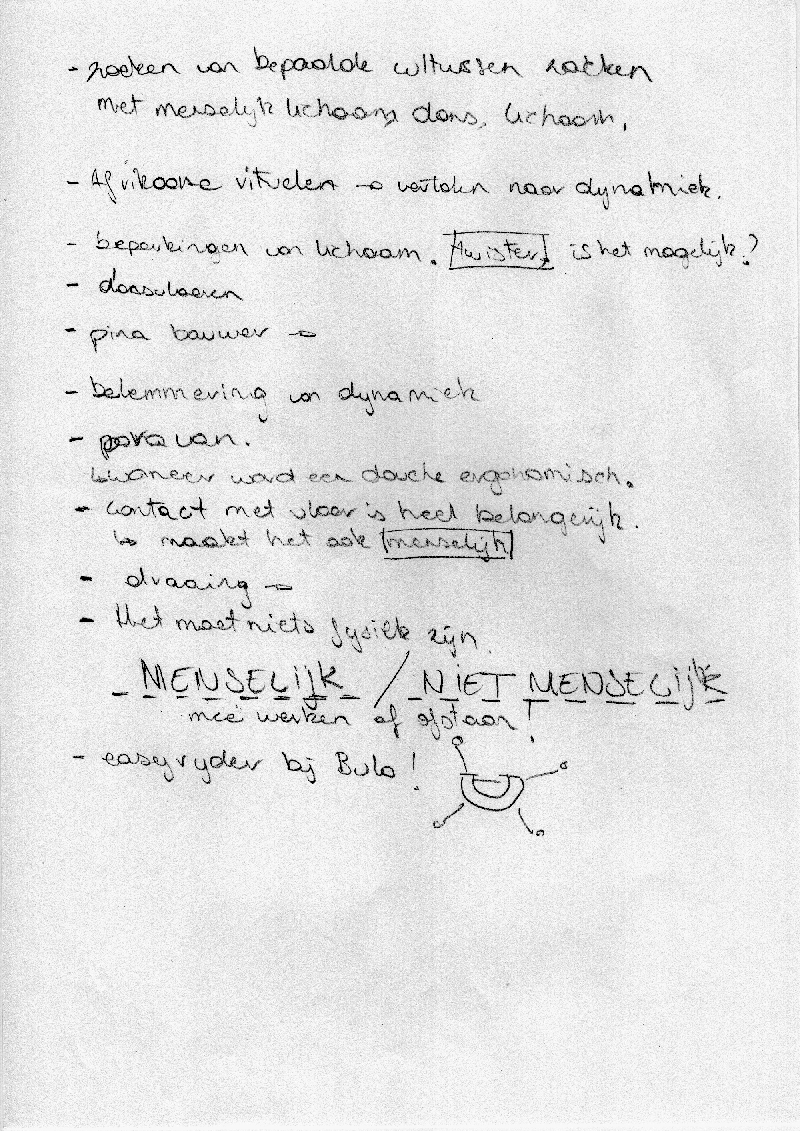 - zoeken van bepaalde cultussen zoeken
met menselijk lichaam, dans, lichaam,
- Afrikaanse rituelen → vertalen naar dynamiek.
- beperkingen van lichaam. twister, is het mogelijk?
- dansvloeren
- pina bauwer →
- belemmering van dynamiek
- paravan.
↳ waneer word een douche ergonomisch.
- contact met vloer is heel belangerijk.
↳ maakt het ook menselijk
- draaing →
- Het moet niets fysiek zijn.
- MENSELIJK / NIET MENSELIJK
mee werken of afstaan!
- easyryder bij Bulo!